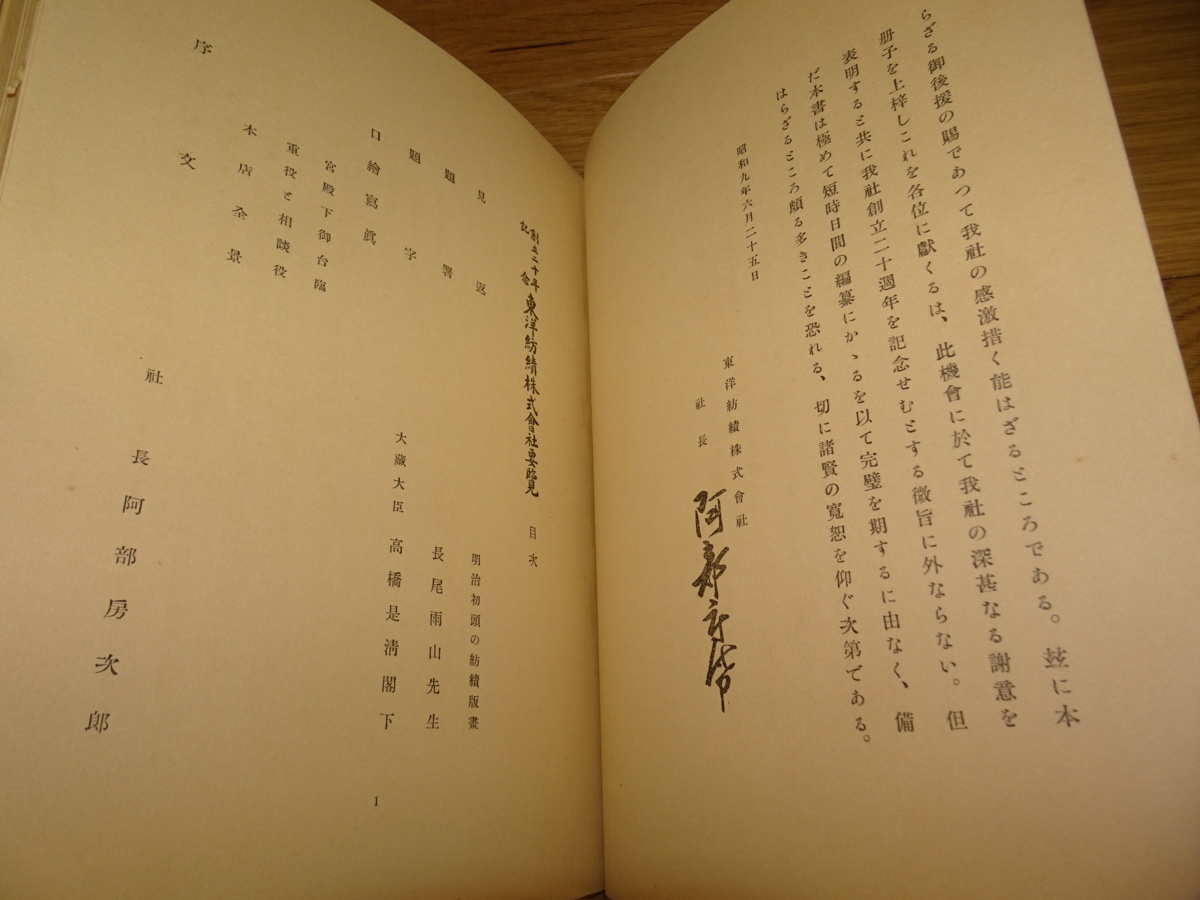 らざる御後援の賜であつて我社の感激措く能はざるところである。玆に本
册子を上梓しこれを各位に獻くるは、此機會に於て我社の深甚なる謝意を
表明すると共に我社創立二十週年を記念せむとする微旨に外ならない。但
だ本書は極めて短時日間の編纂にかゝるを以て完璧を期するに由なく、備
はらざるところ頗る多きことを恐れる、切に諸賢の寬恕を仰ぐ次第である。
昭和九年六月二十五日
東洋紡績株式會社
社長 阿部房次郎
創立二十年記念 東洋紡績株式會社要覽 目次
見返 明治初頭の紡績版畫
題署 長尾雨山先生
題字 大藏大臣 高橋是淸閣下
口繪寫眞
宮殿下御台臨
重役と相談役
本店全景
序文 社長 阿部房次郎
1